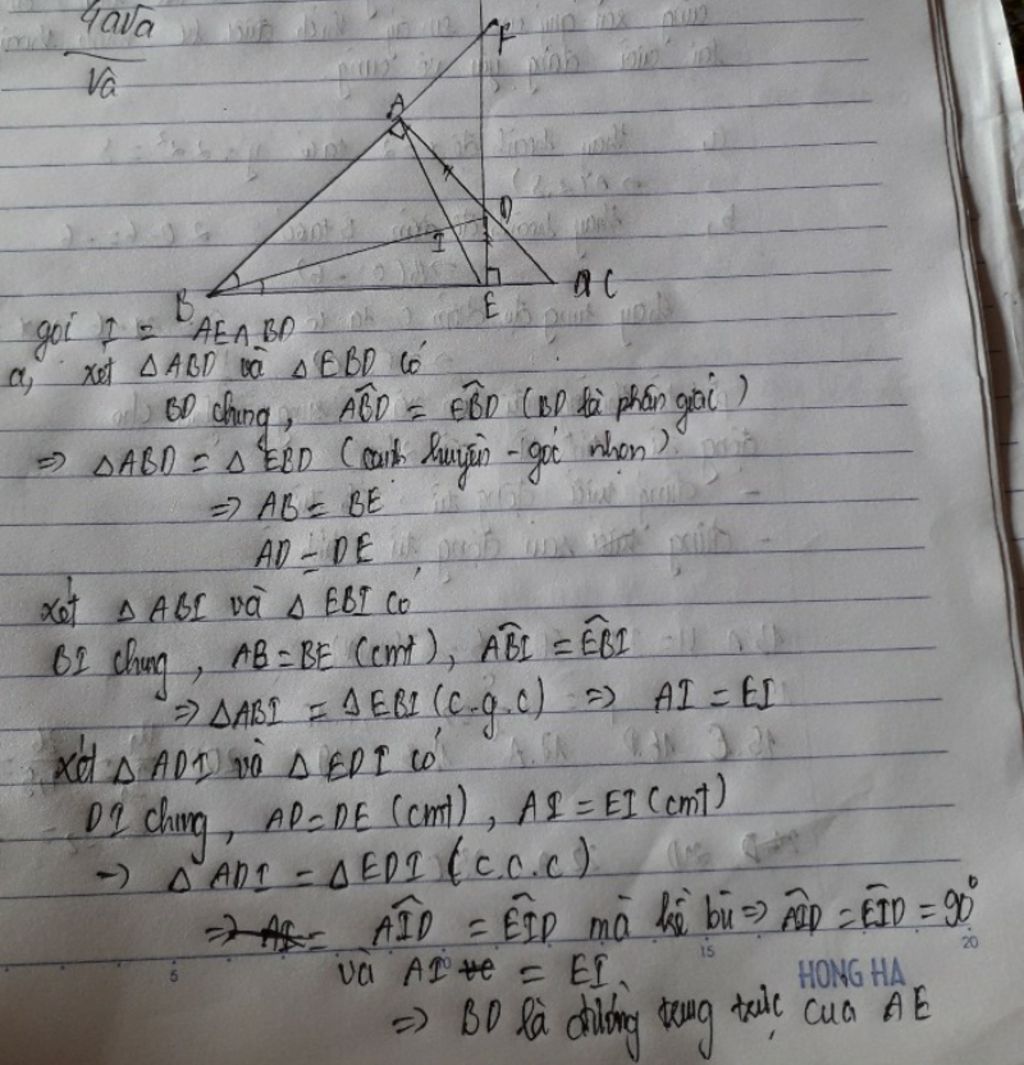 4a√a
√a
F
A
D
I
B
E
C
gọi I = AE ∩ BD
a, xét △ABD và △EBD có
BD chung, ABD̂ = EBD̂ (BD là phân giác)
=> △ABD = △EBD (cạnh huyền - góc nhọn)
=> AB = BE
AD = DE
xét △ABI và △EBI có
BI chung, AB = BE (cmt), ABÎ = EBÎ
=> △ABI = △EBI (c.g.c) => AI = EI
xét △ADI và △EDI có
DI chung, AD = DE (cmt), AI = EI (cmt)
-> △ADI = △EDI (c.c.c)
=> AID̂ = EID̂ mà kề bù => AID̂ = EID̂ = 90°
5 10 15 20
và AI = EI
HONG HA
=> BD là đường trung trực của AE